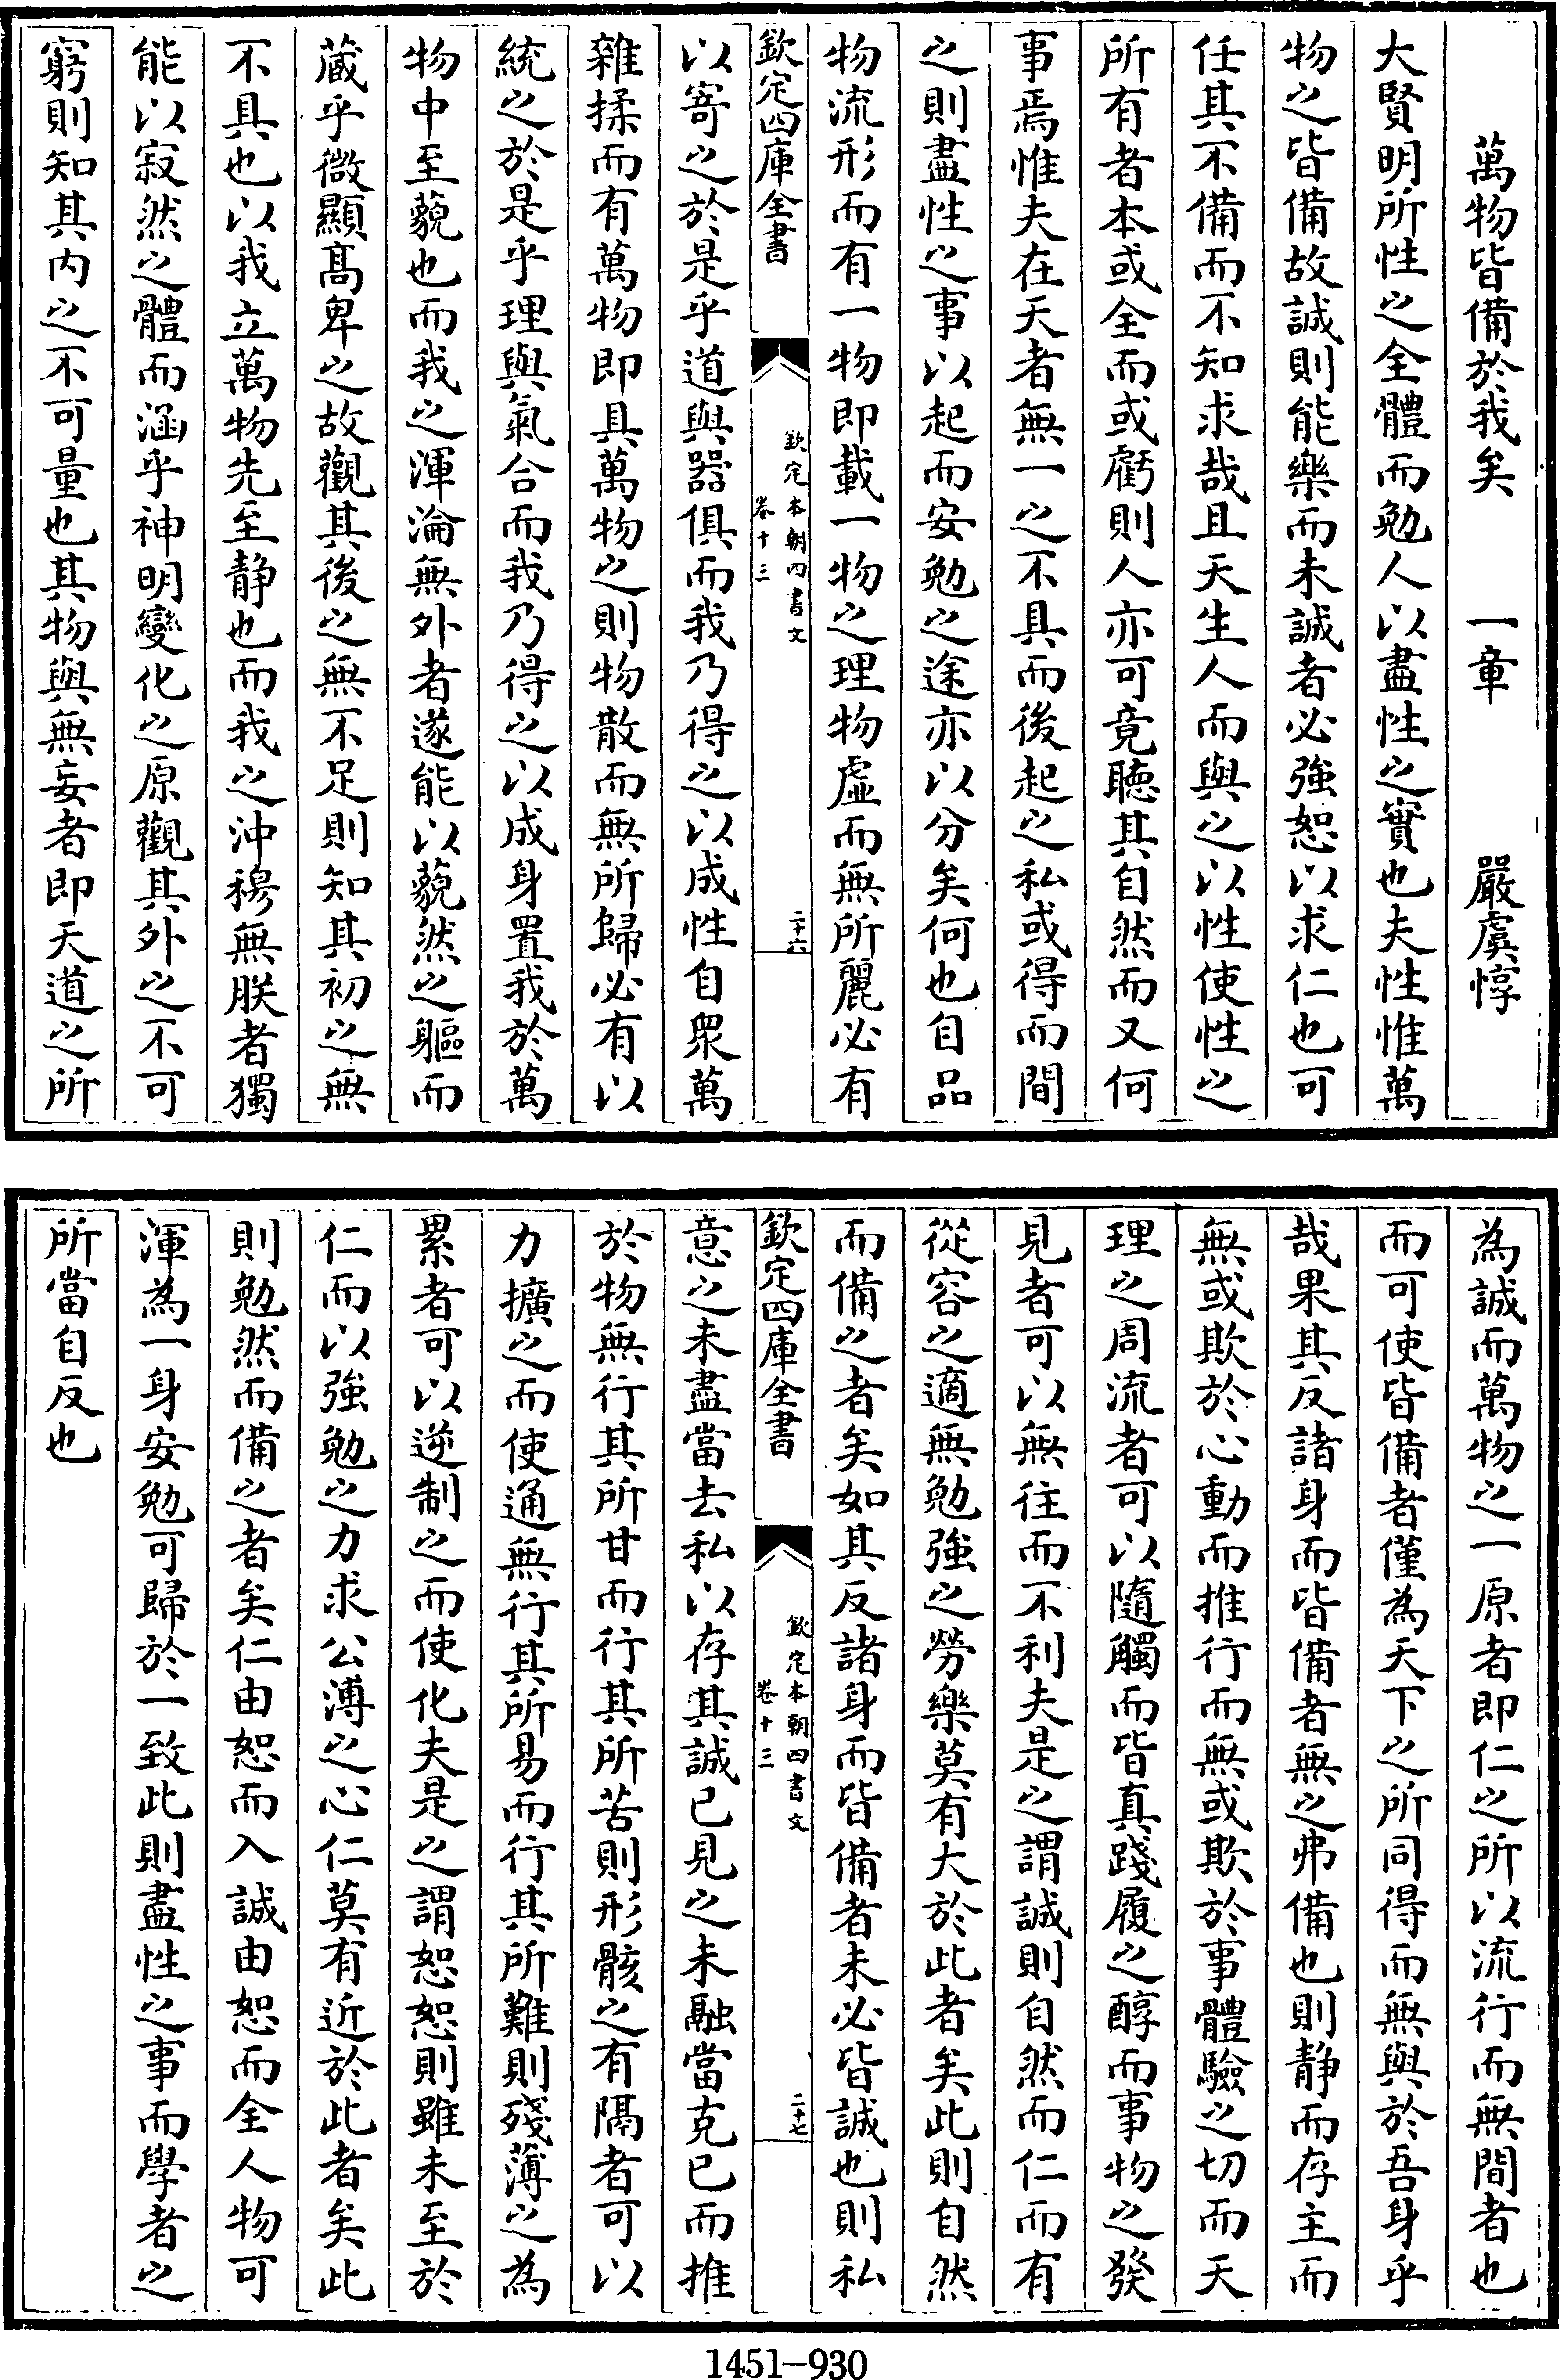 萬物皆備於我矣　一章　嚴虞惇
大賢明所性之全體而勉人以盡性之實也夫性惟萬
物之皆備故誠則能樂而未誠者必強恕以求仁也可
任其不備而不知求哉且天生人而與之以性使性之
所有者本或全而或虧則人亦可竟聽其自然而又何
事焉惟夫在天者無一之不具而後起之私或得而間
之則盡性之事以起而安勉之途亦以分矣何也自品
物流形而有一物即載一物之理物虛而無所麗必有
欽定四庫全書
欽定本朝四書文
卷十三
二十六
以寄之於是乎道與器俱而我乃得之以成性自眾萬
雜揉而有萬物即具萬物之則物散而無所歸必有以
統之於是乎理與氣合而我乃得之以成身置我於萬
物中至藐也而我之渾淪無外者遂能以藐然之軀而
藏乎微顯高卑之故觀其後之無不足則知其初之無
不具也以我立萬物先至静也而我之沖穆無朕者獨
能以寂然之體而涵乎神明變化之原觀其外之不可
窮則知其内之不可量也其物與無妄者即天道之所
為誠而萬物之一原者即仁之所以流行而無間者也
而可使皆備者僅為天下之所同得而無與於吾身乎
哉果其反諸身而皆備者無之弗備也則静而存主而
無或欺於心動而推行而無或欺於事體驗之切而天
理之周流者可以隨觸而皆真踐履之醇而事物之發
見者可以無往而不利夫是之謂誠則自然而仁而有
從容之適無勉強之勞樂莫有大於此者矣此則自然
而備之者矣如其反諸身而皆備者未必皆誠也則私
欽定四庫全書
欽定本朝四書文
卷十三
二十七
意之未盡當去私以存其誠已見之未融當克已而推
於物無行其所甘而行其所苦則形骸之有隔者可以
力擴之而使通無行其所易而行其所難則殘薄之為
累者可以逆制之而使化夫是之謂恕恕則雖未至於
仁而以強勉之力求公溥之心仁莫有近於此者矣此
則勉然而備之者矣仁由恕而入誠由恕而全人物可
渾為一身安勉可歸於一致此則盡性之事而學者之
所當自反也
1451-930